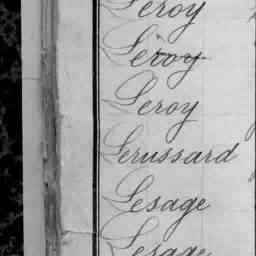 Leroy
Leroy
Leroy
Lerussard
Lesage
Lesage